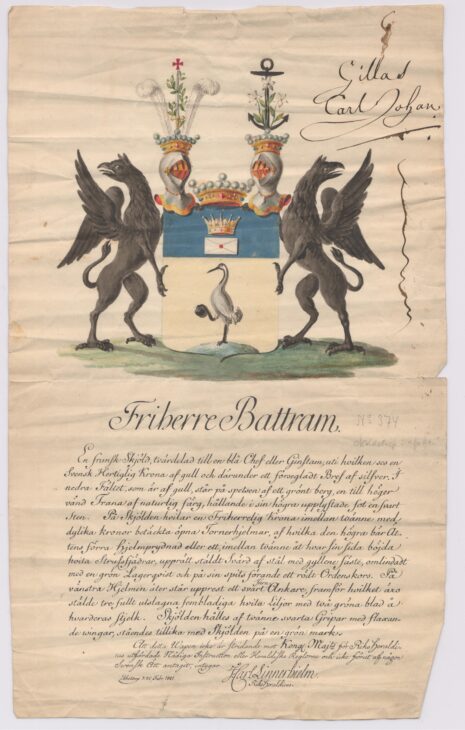 Gillas
Carl Johan
Friherre Battram.
No 374
En fransk Sköld, tvärdelad till en blå Chef eller Ginstam, uti hvilken ses en
Svensk Hertiglig Krona af gull och därunder ett försegladt Bref af silfver. I
nedra Fältet, som är af gull, står på spetsen af ett grönt berg, en till höger
vänd Trana af naturlig färg, hållande i sin högra upplyftade fot en svart
Sten. På Skölden hvilar en Friherrelig Krona imellan tvänne med
dylika kronor betäckta öpna Tornerhjelmar, af hvilka den högra bär Ät-
tens förra Hjelmprydnad eller ett, imellan tvänne åt hvar sin sida böjda
hvita Strutsfjädrar, upprätt ståldt Svärd af stål med gyllene fäste, omlindadt
med en grön Lagerqvist och på sin spits förande ett rödt Ordenskors. På
vänstra Hjelmen åter står upprest ett svart Ankare, framför hvilket äro
stälde tre, fullt utslagna fembladiga hvita Liljor med två gröna blad å
hvarderas stjelk. Skölden hålles af tvänne svarta Gripar med flaxan-
de vingar, stående tillika med Skölden på en grön mark.
Att detta Wapen icke är stridande mot Kongl Majts för Riks Heraldi-
cus utfärdade Nådiga Instruction eller Heraldiska Reglorne och icke förut af någon
Svensk Ätt antaget, intygar
Carl Linnerhielm
Riks Heraldicus.